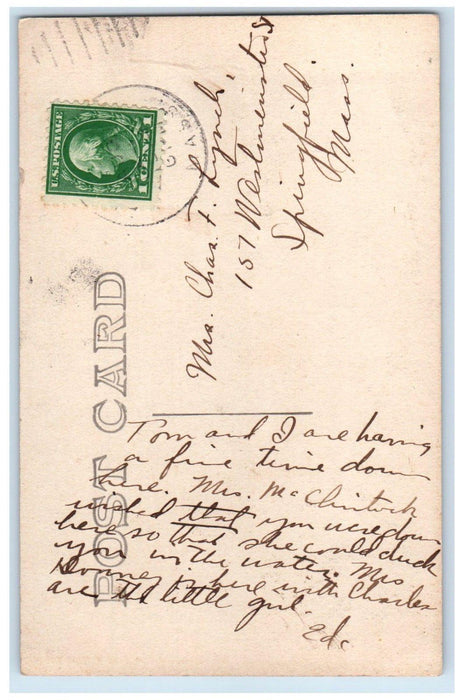 U.S. POSTAGE
1 CENT 1
MASS
POST CARD
Mrs. Chas. F. Lynch,
157 Westminster St
Springfield.
Mass.
Tom and I are having
a fine time down
here. Mrs. McClintock
wished that you were down
here so that she could duck
you in the water. Mrs
here with Charles
are little girl.
Ed.